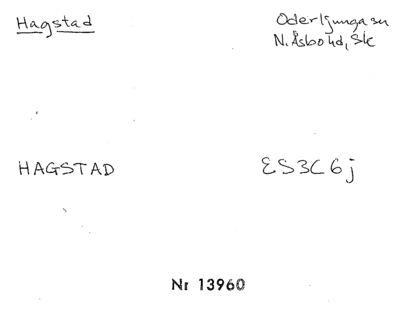 Hagstad
Oderljunga sn
N. Åsbo hd, Sk
HAGSTAD
ES3C6j
Nr 13960